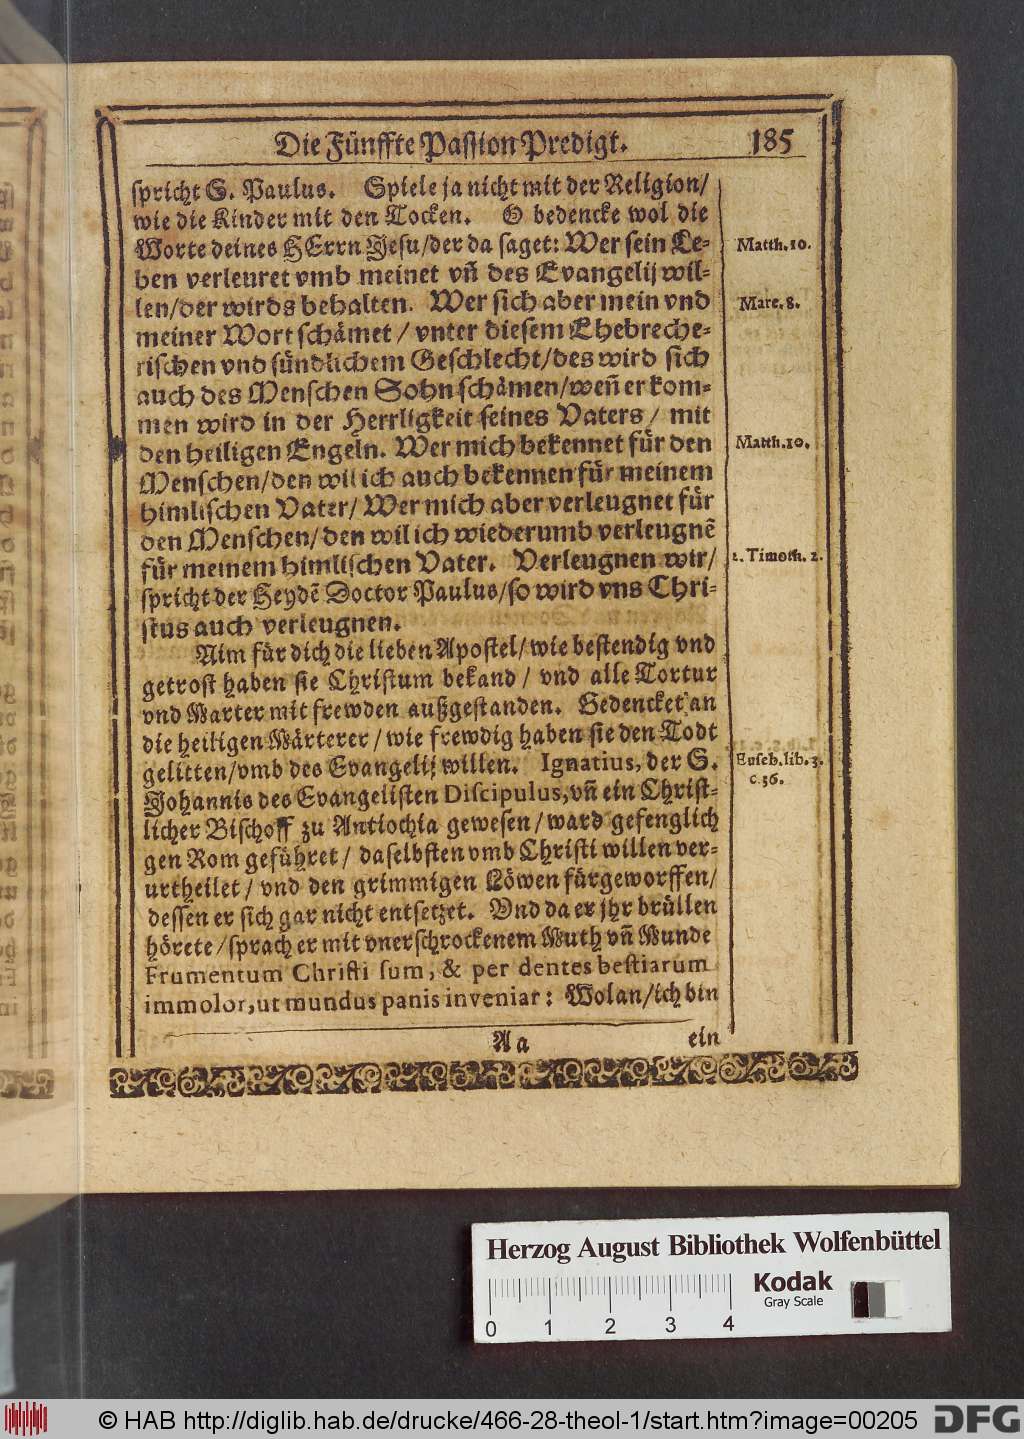 Die Fünffte Passion Predigt. 185
spricht S. Paulus. Spiele ja nicht mit der Religion/
wie die Kinder mit den Tocken. O bedencke wol die
Worte deines HErrn Jesu/der da saget: Wer sein Le-
ben verleuret vmb meinet vn̄ des Evangelij wil-
len/der wirds behalten. Wer sich aber mein vnd
meiner Wort schämet / vnter diesem Ehebreche-
rischen vnd sündlichem Geschlecht/des wird sich
auch des Menschen Sohn schämen/wen̄ er kom-
men wird in der Herrligkeit seines Vaters / mit
den heiligen Engeln. Wer mich bekennet für den
Menschen/den wil ich auch bekennen für meinem
himlischen Vater/ Wer mich aber verleugnet für
den Menschen/den wil ich wiederumb verleugnē
für meinem himlischen Vater. Verleugnen wir/
spricht der Heydē Doctor Paulus/so wird vns Chri-
stus auch verleugnen.
Nim für dich die lieben Apostel/wie bestendig vnd
getrost haben sie Christum bekand / vnd alle Tortur
vnd Marter mit frewden außgestanden. Bedencket an
die heiligen Märterer / wie frewdig haben sie den Todt
gelitten/vmb des Evangelij willen. Ignatius, der S.
Johannis des Evangelisten Discipulus, vn̄ ein Christ-
licher Bischoff zu Antiochia gewesen / ward gefenglich
gen Rom geführet / daselbsten vmb Christi willen ver-
urtheilet / vnd den grimmigen Löwen fürgeworffen/
dessen er sich gar nicht entsetzet. Vnd da er jhr brüllen
hörete/sprach er mit vnerschrockenem Muth vn̄ Munde
Frumentum Christi sum, & per dentes bestiarum
immolor, ut mundus panis inveniar: Wolan/ich bin
Aa ein
Matth. 10.
Marc. 8.
Matth. 10.
2. Timoth. 2.
Euseb. lib. 3.
c. 36.
Herzog August Bibliothek Wolfenbüttel
Kodak
Gray Scale
0 1 2 3 4
© HAB http://diglib.hab.de/drucke/466-28-theol-1/start.htm?image=00205 DFG